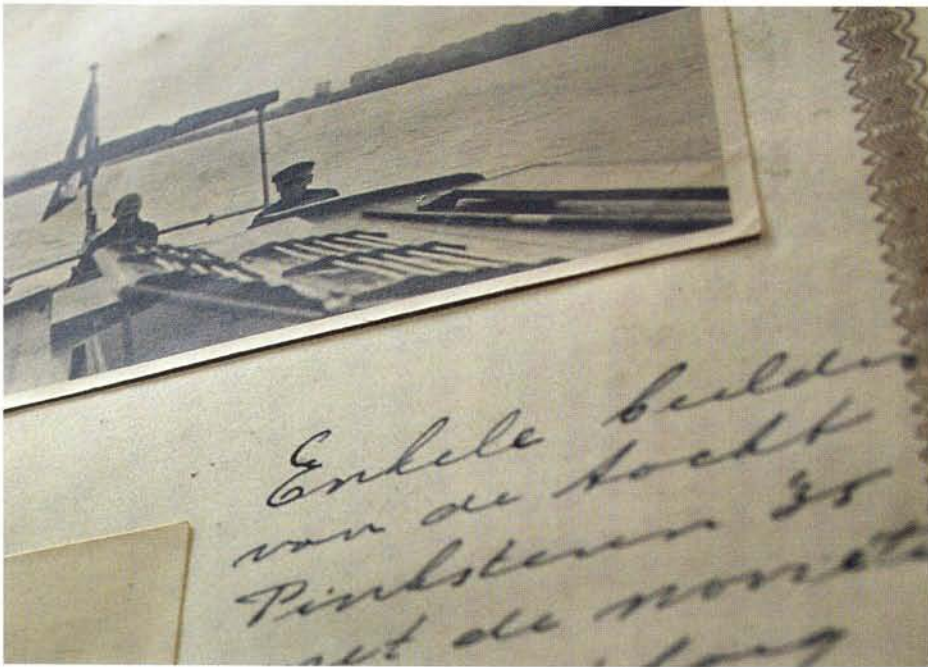 Enkele beelden
van de tocht
Pinksteren '35
met de